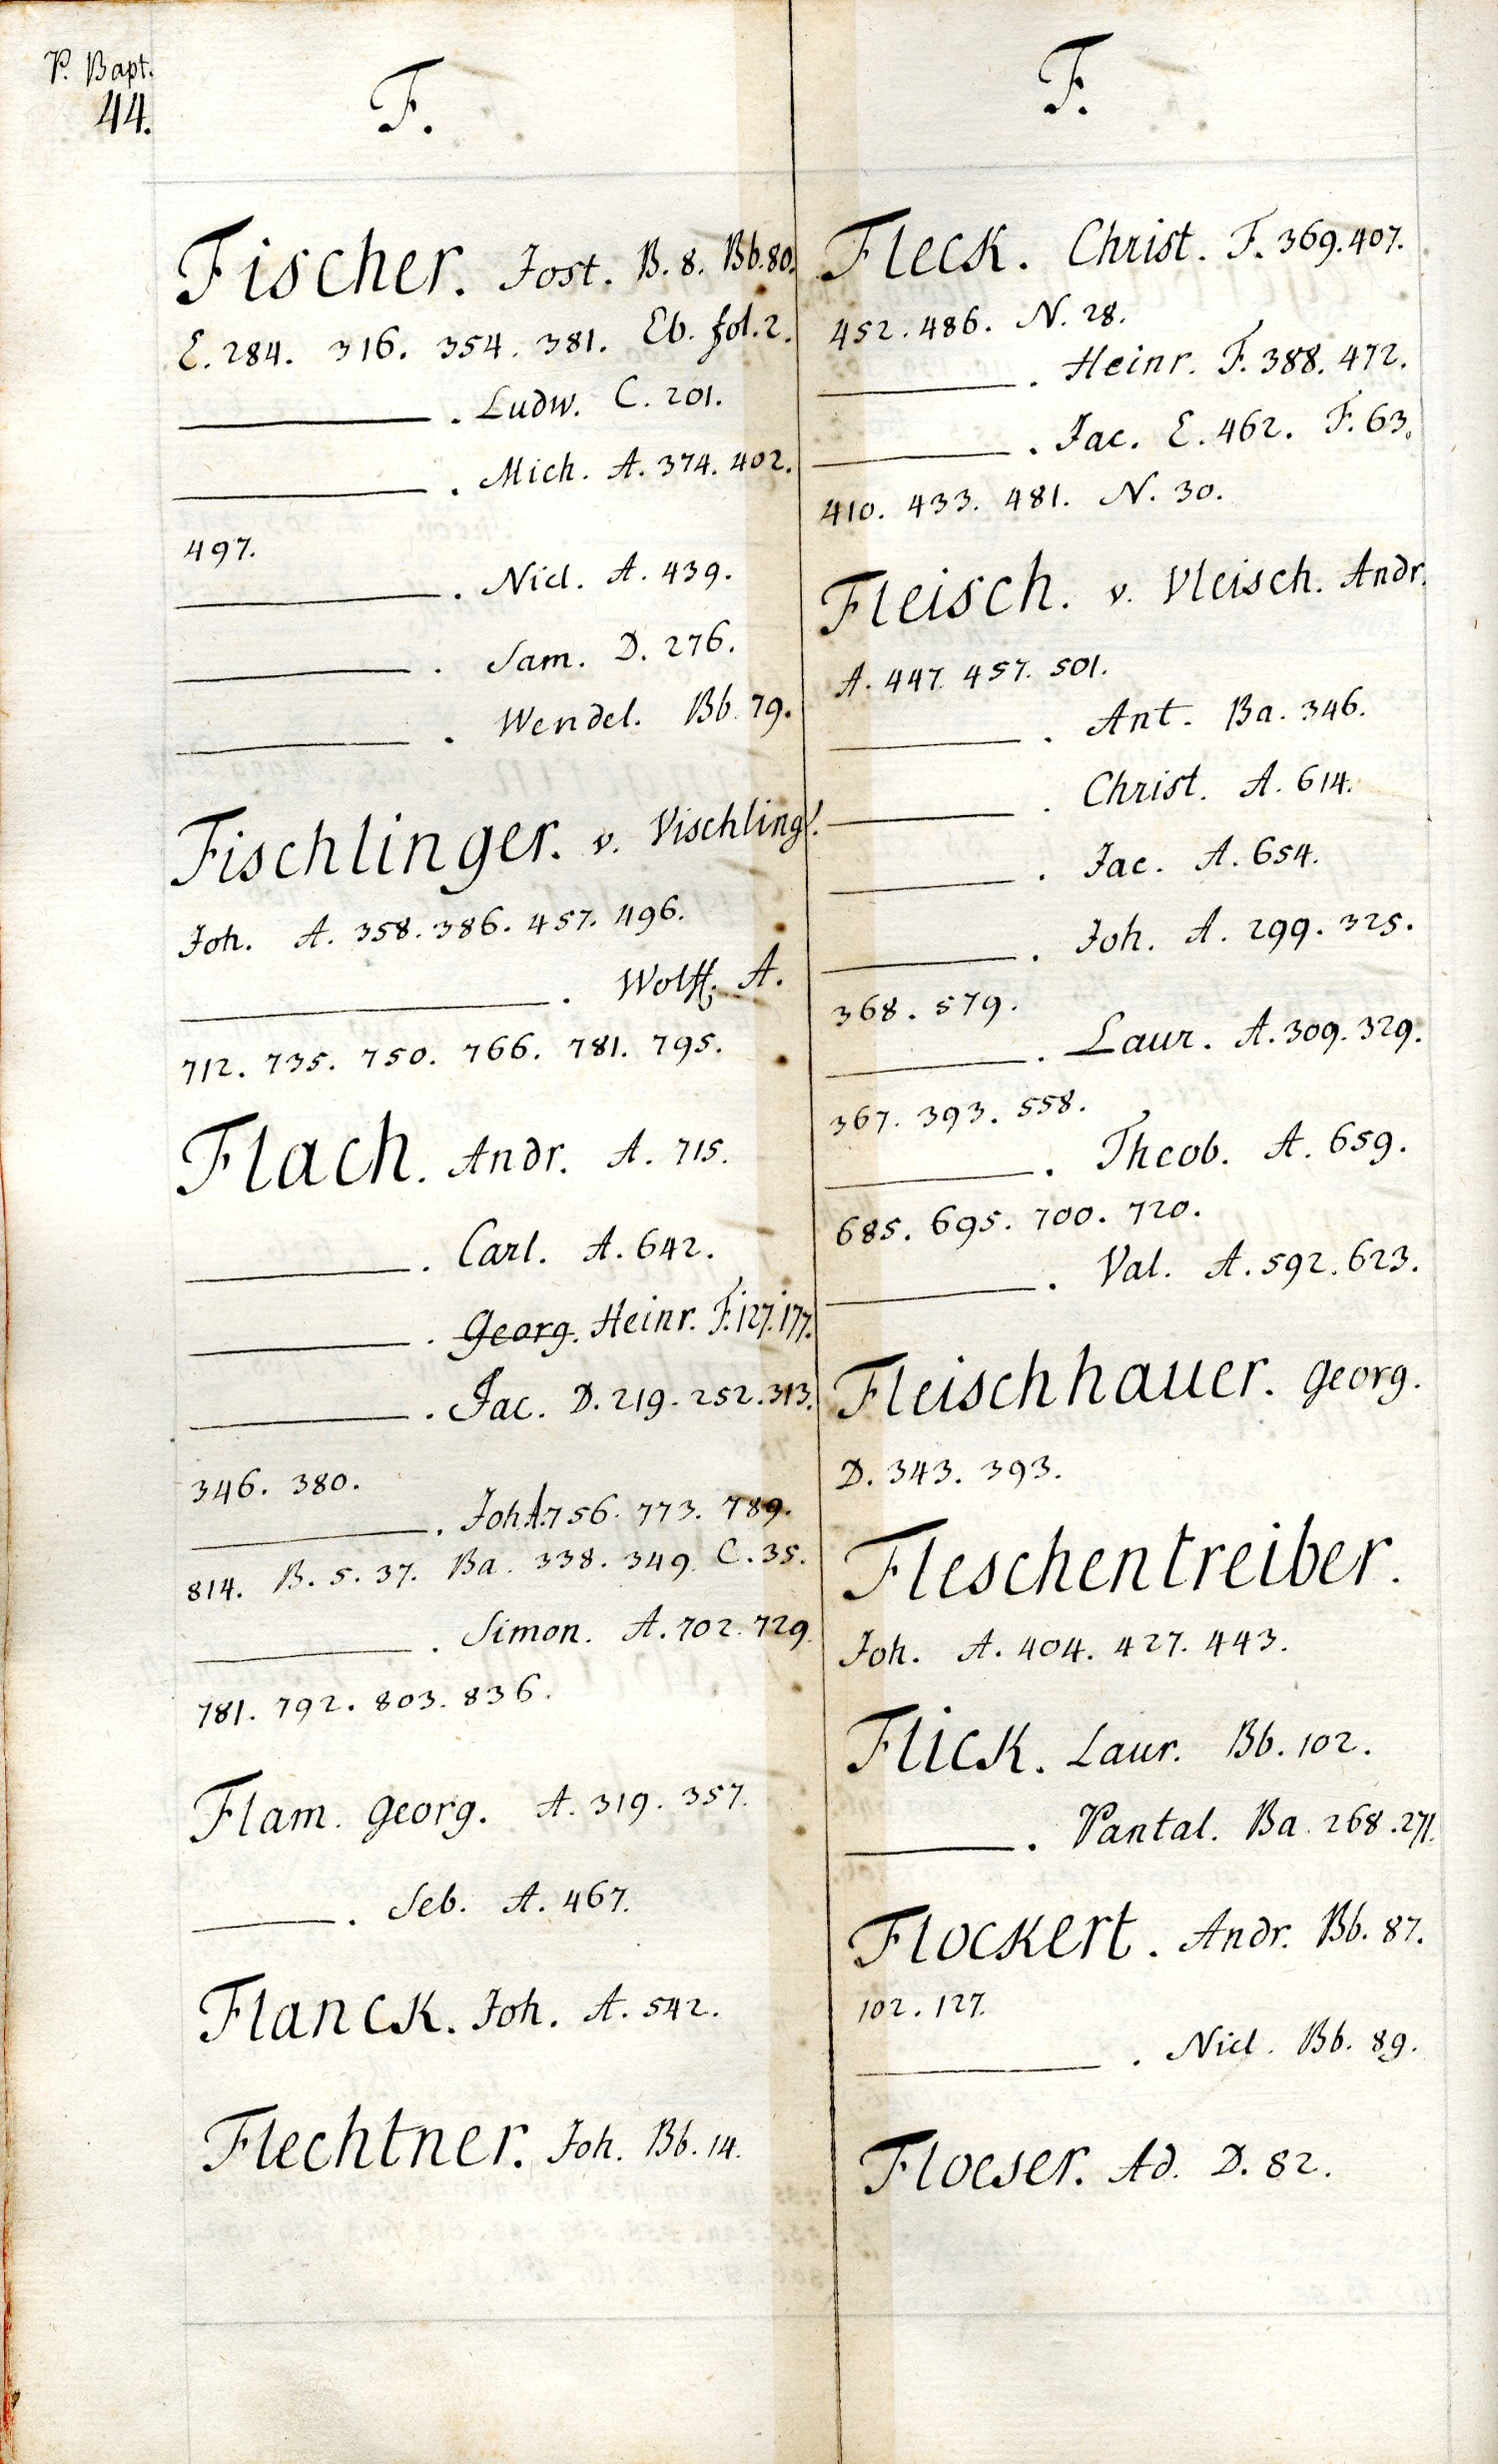 P. Bapt.
44.
F.
Fischer. Jost. B. 8. Bb. 80.
E. 284. 316. 354. 381. Eb. fol. 2.
———. Ludw. C. 201.
———. Mich. A. 374. 402.
497.
———. Nicl. A. 439.
———. Sam. D. 276.
———. Wendel. Bb. 79.
Fischlinger. v. Vischling.
Joh. A. 358. 386. 457. 496.
———. Wolff. A.
712. 735. 750. 766. 781. 795.
Flach. Andr. A. 715.
———. Carl. A. 642.
———. Georg. Heinr. F. 127. 177.
———. Jac. D. 219. 252. 313.
346. 380.
———. Joh. A. 756. 773. 789.
814. B. 5. 37. Ba. 338. 349. C. 35.
———. Simon. A. 702. 729.
781. 792. 803. 836.
Flam. Georg. A. 319. 357.
———. Seb. A. 467.
Flanck. Joh. A. 542.
Flechtner. Joh. Bb. 14.
F.
Fleck. Christ. F. 369. 407.
452. 486. N. 28.
———. Heinr. F. 388. 472.
———. Jac. E. 462. F. 63.
410. 433. 481. N. 30.
Fleisch. v. Vleisch. Andr.
A. 447. 457. 501.
———. Ant. Ba. 346.
———. Christ. A. 614.
———. Jac. A. 654.
———. Joh. A. 299. 325.
368. 579.
———. Laur. A. 309. 329.
367. 393. 558.
———. Theob. A. 659.
685. 695. 700. 720.
———. Val. A. 592. 623.
Fleischhauer. Georg.
D. 343. 393.
Fleschentreiber.
Joh. A. 404. 427. 443.
Flick. Laur. Bb. 102.
———. Pantal. Ba. 268. 271.
Flockert. Andr. Bb. 87.
102. 127.
———. Nicl. Bb. 89.
Floeser. Ad. D. 82.